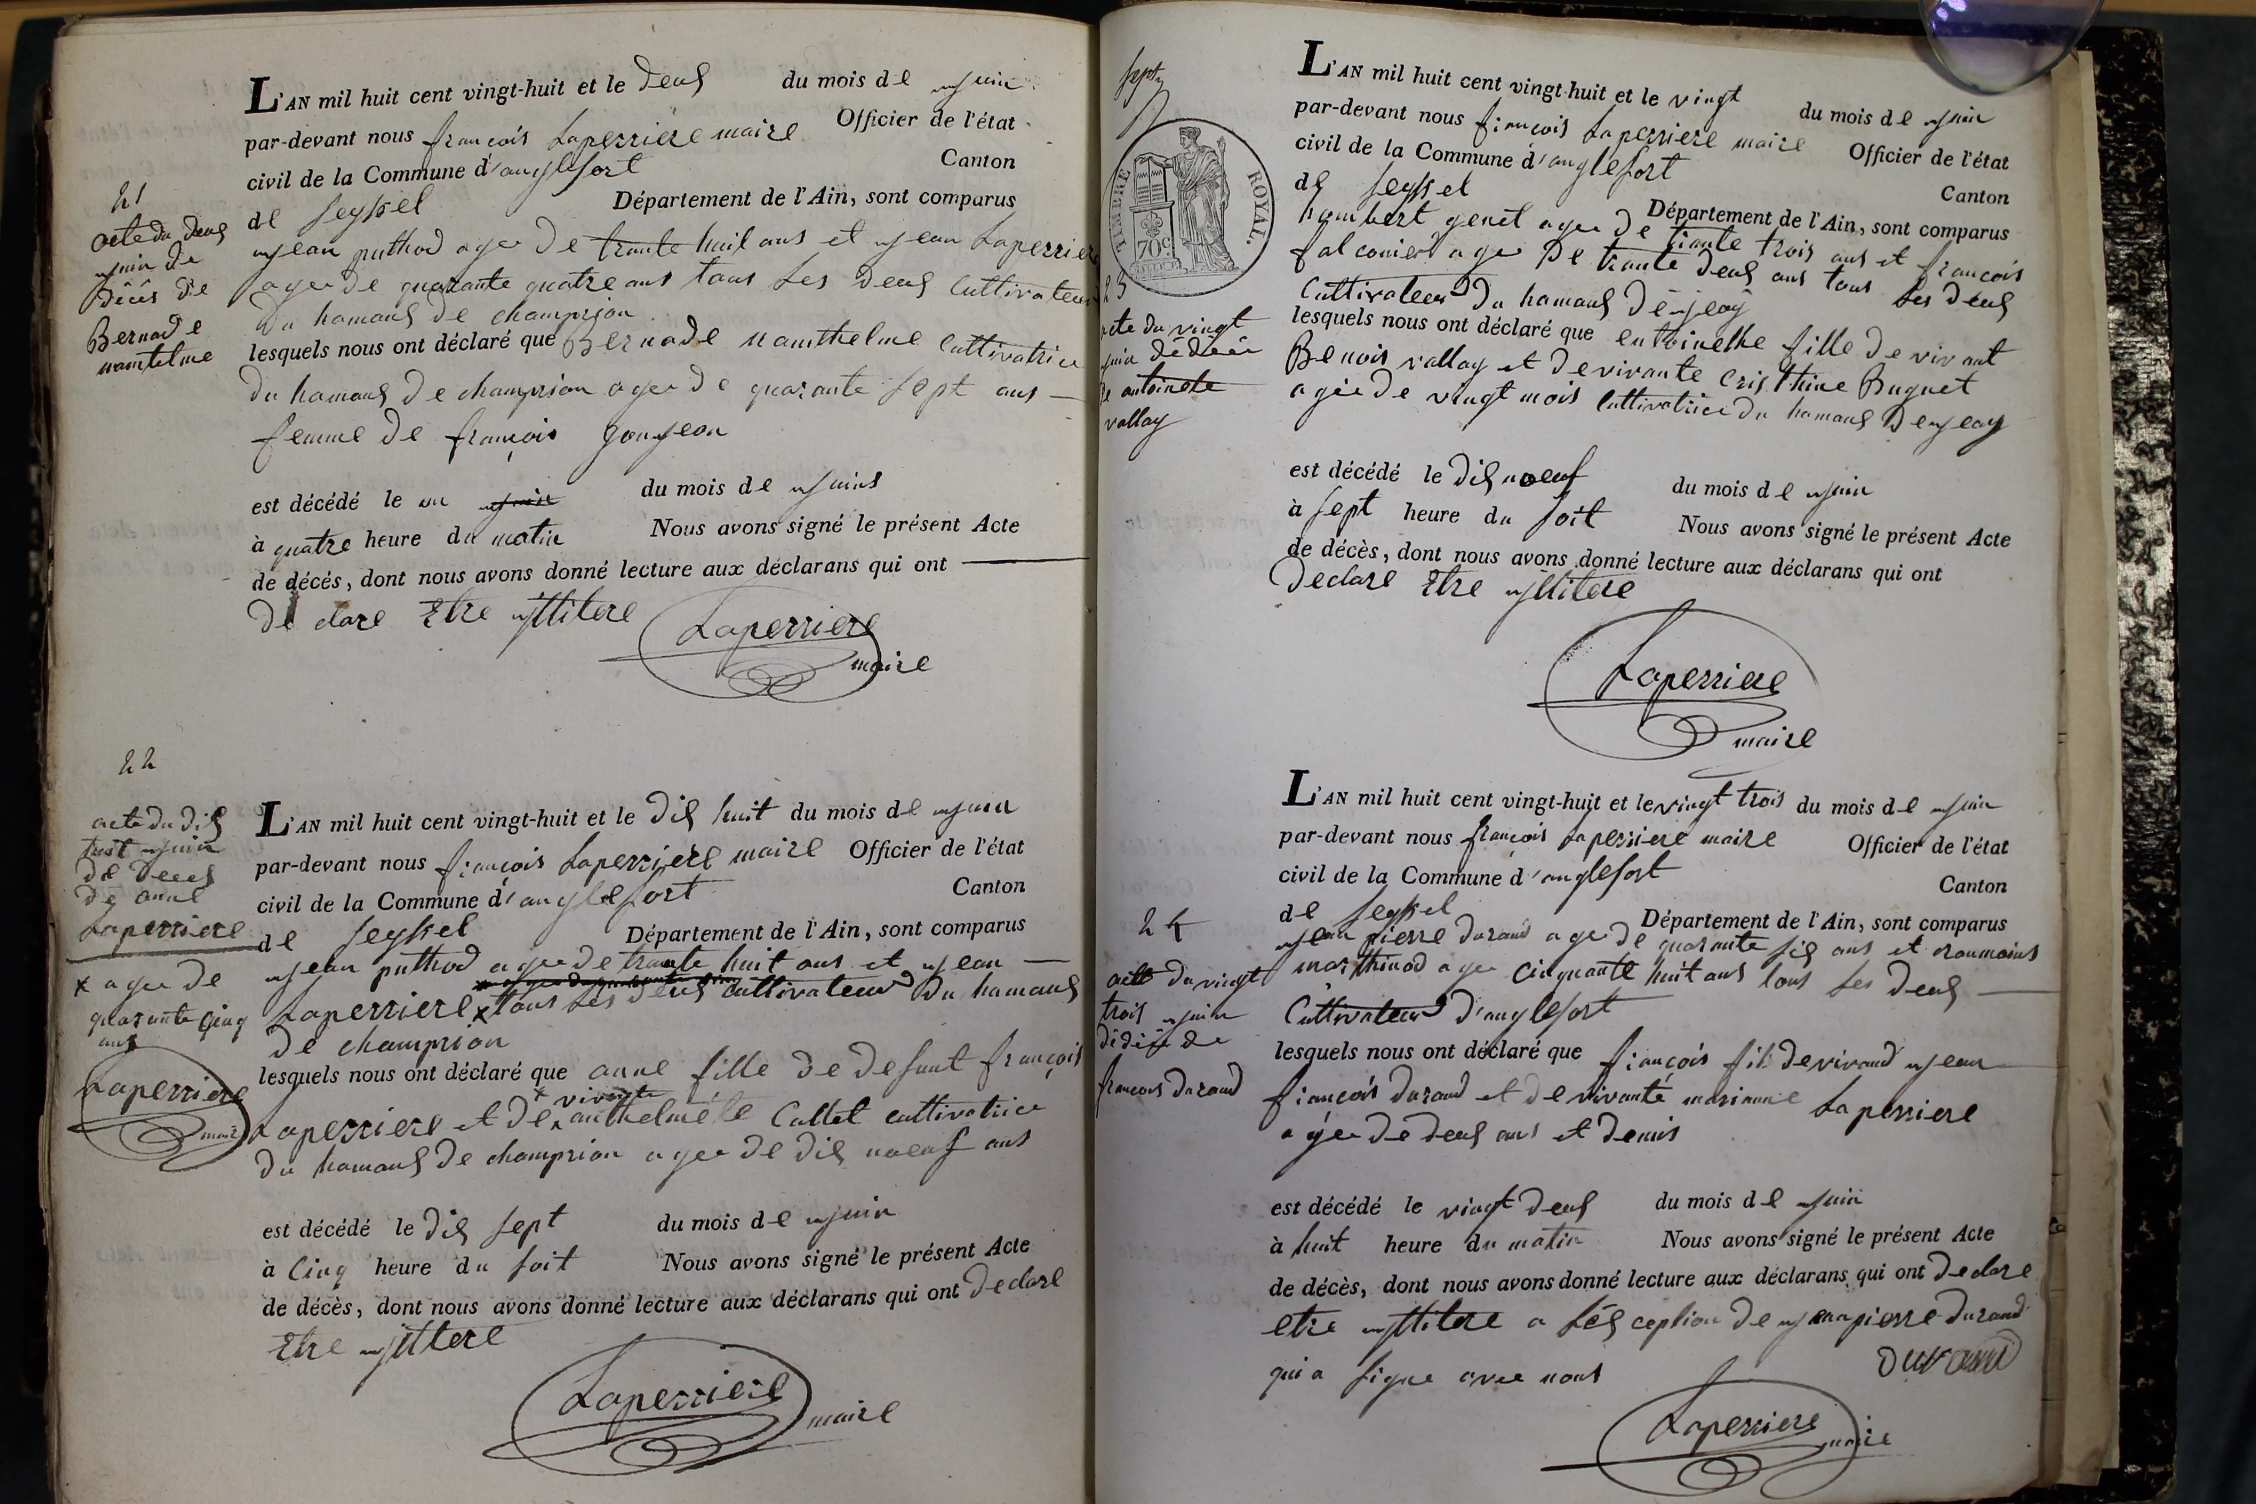 21
acte du deus
juin de
décés de
Bernade
namtelme
L'AN mil huit cent vingt-huit et le deus du mois de juin
par-devant nous françois Laperriere maire Officier de l'état
civil de la Commune d'anglefort Canton
de seyssel Département de l'Ain, sont comparus
jean puthod agee de trante huit ans et jean Laperriere
agee de quarante quatre ans tous Les deus Cultivateur
du hamaus de champrion
lesquels nous ont déclaré que Bernade namthelme Cultivatrice
du hamaus de champrion agee de quarante sept ans
femme de françois goujeon
est décédé le un juin du mois de juins
à quatre heure du matin Nous avons signé le présent Acte
de décés, dont nous avons donné lecture aux déclarans qui ont
de clare Etre jllitere
Laperriere
maire
22
acte du dis
huit juin
de deces
de anne
Laperriere
x agee de
quarante cinq
ans
Laperriere
maire
L'AN mil huit cent vingt-huit et le dis huit du mois de juin
par-devant nous françois Laperriere maire Officier de l'état
civil de la Commune d'anglefort Canton
de seyssel Département de l'Ain, sont comparus
jean puthod agee de trante huit ans et jean
Laperriere x tous Les deus Cultivateur du hamaus
de champrion
lesquels nous ont déclaré que anne fille de defunt françois
x vivante
Laperriere et de x anthelmete Callet cultivatrice
du hamaus de champrion agee de dis noeuf ans
est décédé le dis sept du mois de juin
à Cinq heure du soit Nous avons signé le présent Acte
de décès, dont nous avons donné lecture aux déclarans qui ont declare
Etre jllitere
Laperriere
maire
septz
TIMBRE ROYAL.
70c
23
acte du vingt
juin dédécé
de antoinete
vallay
L'AN mil huit cent vingt-huit et le vingt du mois de juin
par-devant nous françois Laperriere maire Officier de l'état
civil de la Commune d'anglefort Canton
de seyssel Département de l'Ain, sont comparus
humbert genet agee de trante trois ans et francois
falconier agee De trante deus ans tous Les deus
Cultivateur du hamaus déjeay
lesquels nous ont déclaré que entoinethe fille de vivant
Benois vallay et de vivante Cristhine Buguet
agée de vingt mois Cultivatrice du hamaus Dejeay
est décédé le dis noeuf du mois de juin
à sept heure du soit Nous avons signé le présent Acte
de décès, dont nous avons donné lecture aux déclarans qui ont
declare Etre jllitere
Laperriere
maire
24
acte du vingt
trois juin
dédécé de
francois durand
L'AN mil huit cent vingt-huit et le vingt trois du mois de juin
par-devant nous françois Laperriere maire Officier de l'état
civil de la Commune d'anglefort Canton
de seyssel Département de l'Ain, sont comparus
jean pierre durand agee de quarante sis ans et
marthinod agee cinquante huit ans tous Les deus
Cultivateur d'anglefort
lesquels nous ont déclaré que françois fils de vivand jean
françois durand et de vivante marianne Laperriere
agée de deus ans et demis
est décédé le vingt deus du mois de juin
à huit heure du matin Nous avons signé le présent Acte
de décès, dont nous avons donné lecture aux déclarans qui ont declare
etre jllitere a Lésception de jeanpierre durand
qui a signe avec nous Durand
Laperriere
maire